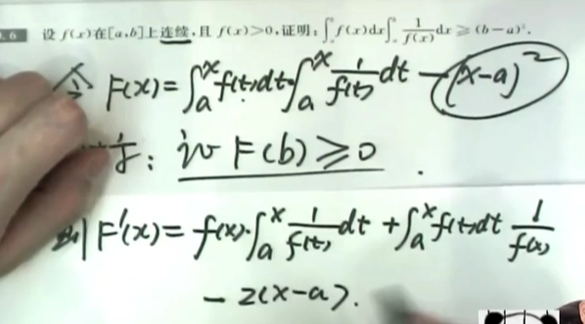 设 f(x)在[a,b]上连续,且 f(x)>0,证明:∫f(x)dx∫1/f(x)dx≥(b-a)².
令 F(x)=∫ₐˣf(t)dt·∫ₐˣ1/f(t)dt-(x-a)²
于: 证 F(b)≥0.
则 F'(x)=f(x)·∫ₐˣ1/f(t)dt+∫ₐˣf(t)dt 1/f(x)
-2(x-a).